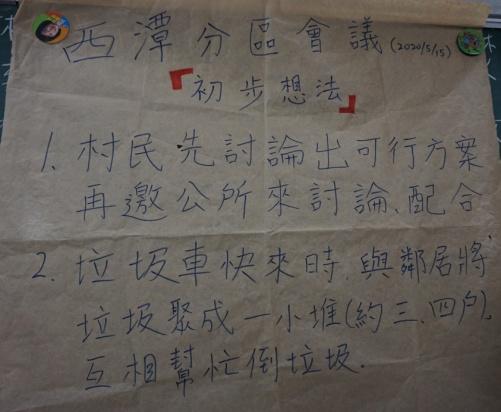 西潭分區會議(2020/5/15)
「初步想法」
1. 村民先討論出可行方案
再邀公所來討論、配合
2. 垃圾車快來時,與鄰居將
垃圾聚成一小堆(約三、四戶),
互相幫忙倒垃圾.